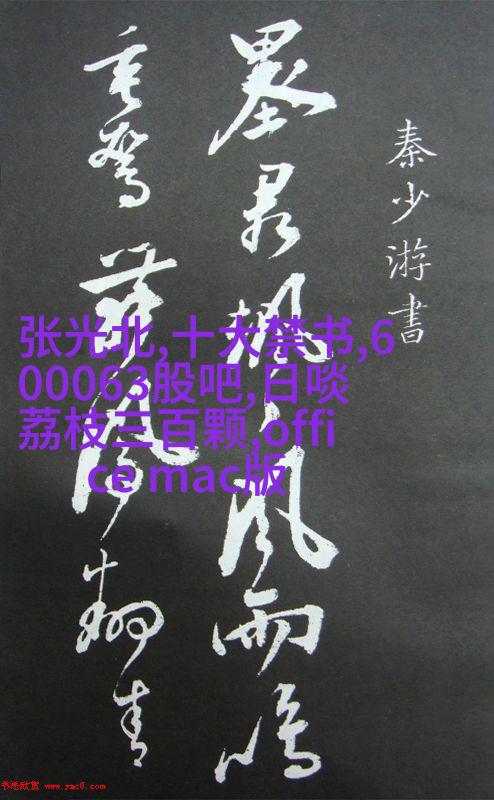 秦少游書
墨君颯風雨鳴
舞青
张光北,十大禁书,6
00063股吧,日啖
荔枝三百颗,offi
ce mac版
书法欣赏 www.yac8.com